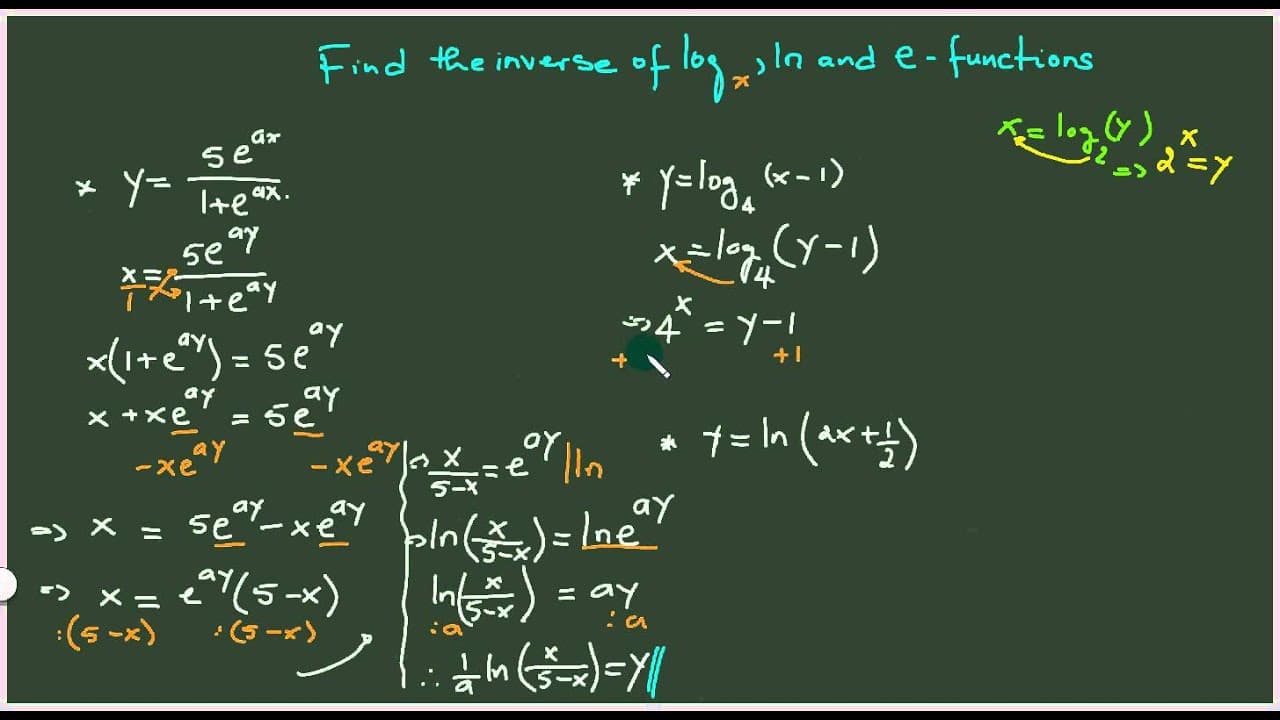 Find the inverse of logₓ, ln and e-functions
x = log₂(y) => 2ˣ = y
* y = 5e^(ax) / 1+e^(ax).
x/1 = 5e^(ay) / 1+e^(ay)
x(1+e^(ay)) = 5e^(ay)
x + xe^(ay) = 5e^(ay)
-xe^(ay) -xe^(ay)
=> x = 5e^(ay) - xe^(ay)
=> x = e^(ay)(5-x)
:(5-x) :(5-x)
=> x/5-x = e^(ay) | ln
=> ln(x/5-x) = ln e^(ay)
ln(x/5-x) = ay
:a :a
∴ 1/a ln(x/5-x) = y
* y = log₄(x-1)
x = log₄(y-1)
=> 4ˣ = y-1
+ +1
* y = ln(2x+1/2)